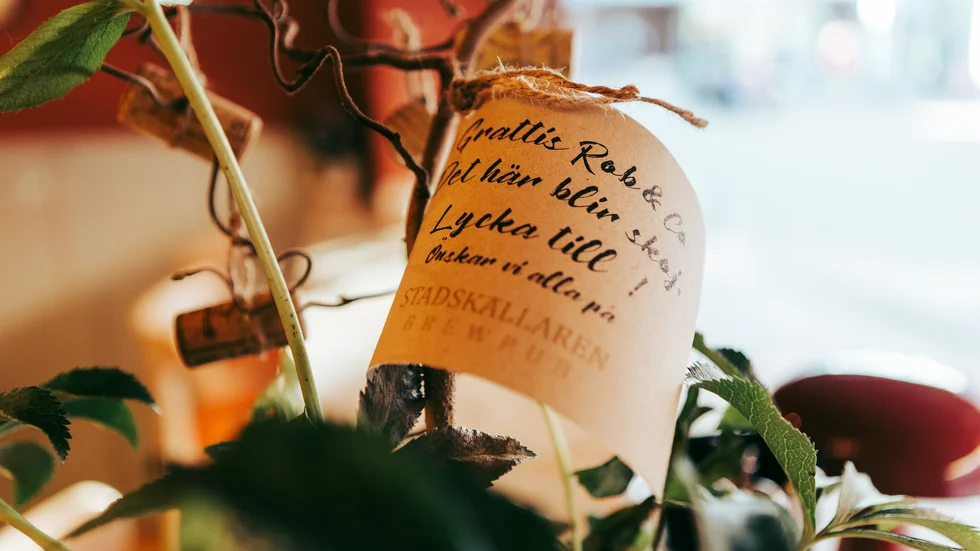 Grattis Rob & Co
Det här blir skoj,
Lycka till !
Önskar vi alla på
STADSKÄLLAREN
BREWPUB